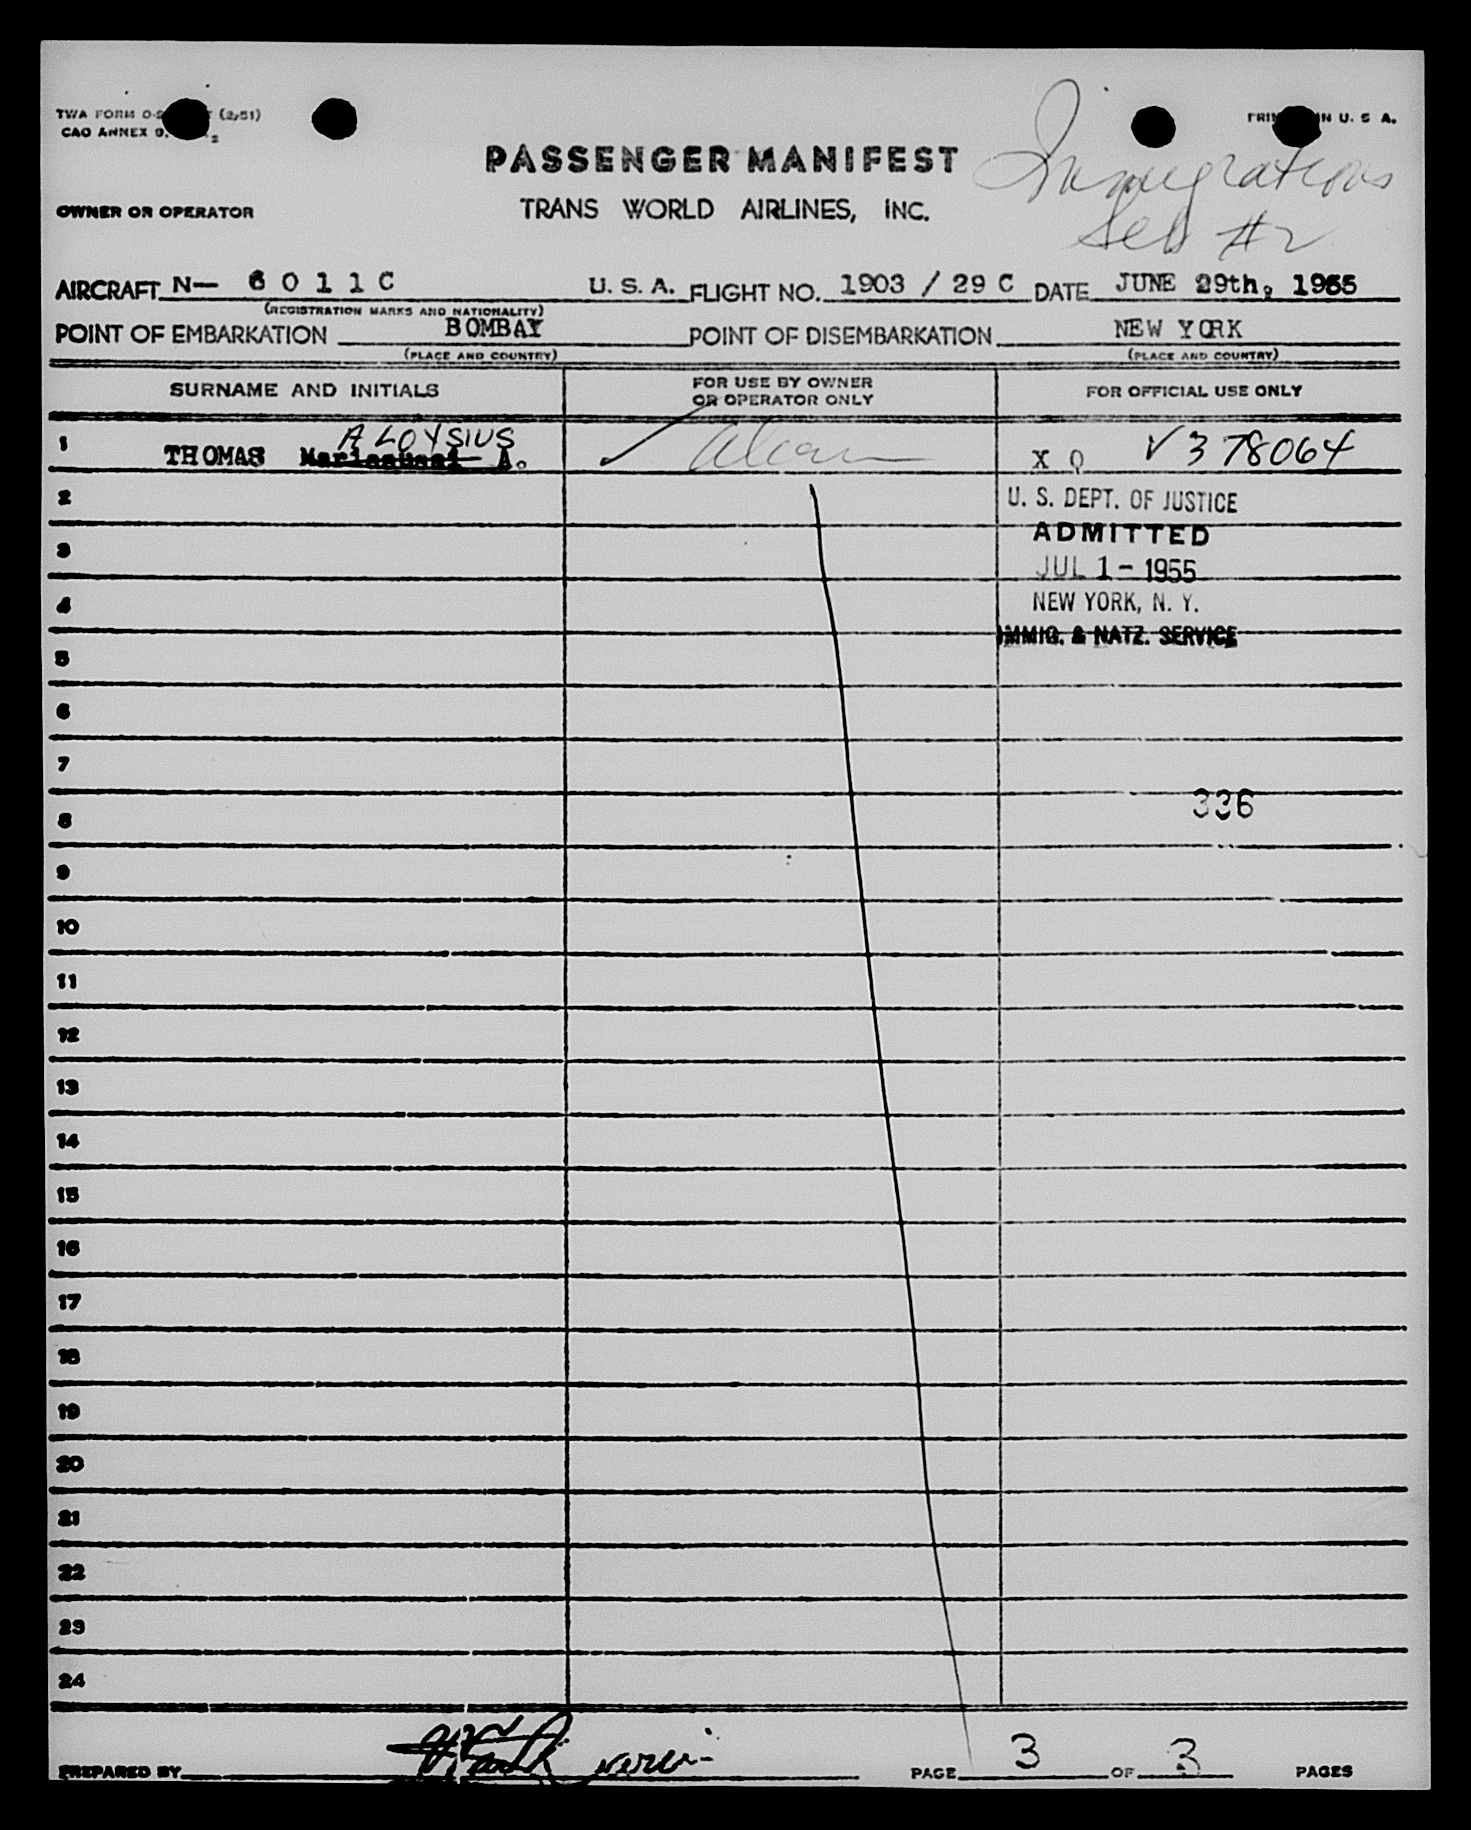 TWA FORM O- (2/51)
CAO ANNEX 9.
PRINTED IN U. S. A.
PASSENGER MANIFEST
Immigrations
OWNER OR OPERATOR
TRANS WORLD AIRLINES, INC.
#2
AIRCRAFT N— 6 0 1 1 C U. S. A. FLIGHT NO. 1903 / 29 C DATE JUNE 29th, 1955
(REGISTRATION MARKS AND NATIONALITY)
POINT OF EMBARKATION BOMBAY POINT OF DISEMBARKATION NEW YORK
(PLACE AND COUNTRY) (PLACE AND COUNTRY)
SURNAME AND INITIALS FOR USE BY OWNER OR OPERATOR ONLY FOR OFFICIAL USE ONLY
ALOYSIUS
1 THOMAS A. X O V378064
2 U. S. DEPT. OF JUSTICE
3 ADMITTED
JUL 1 - 1955
4 NEW YORK, N. Y.
5 IMMIG. & NATZ. SERVICE
6
7
8 336
9
10
11
12
13
14
15
16
17
18
19
20
21
22
23
24
PREPARED BY PAGE 3 OF 3 PAGES